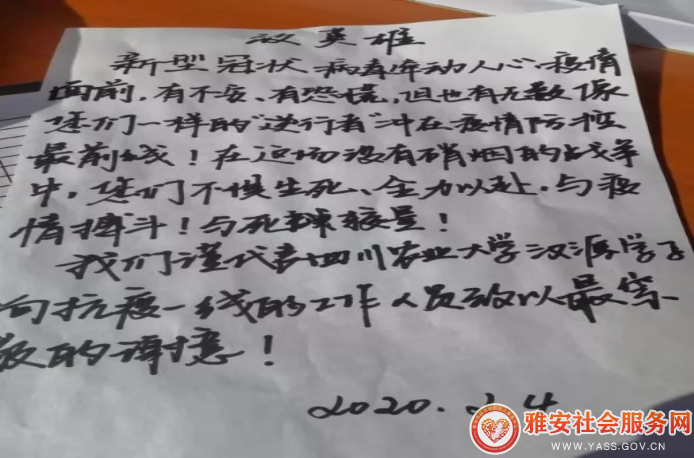 致英雄
新型冠状病毒牵动人心,疫情
面前,有不安、有恐慌,但也有无数像
您们一样的“逆行者”冲在疫情防控
最前线!在这场没有硝烟的战争
中,您们不惧生死、全力以赴,与疫
情搏斗!与死神较量!
我们谨代表四川农业大学汉源学子
向抗疫一线的工作人员致以最崇
敬的谢意!
2020.2.4
雅安社会服务网
WWW.YASS.GOV.CN